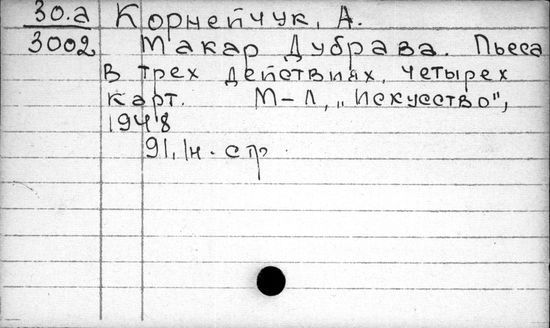 30.a Корнейчук, А.
3002 Макар Дубрава. Пьеса
в трех действиях, четырех
карт. М-Л, „Искусство",
1948
91, 1н. стр.